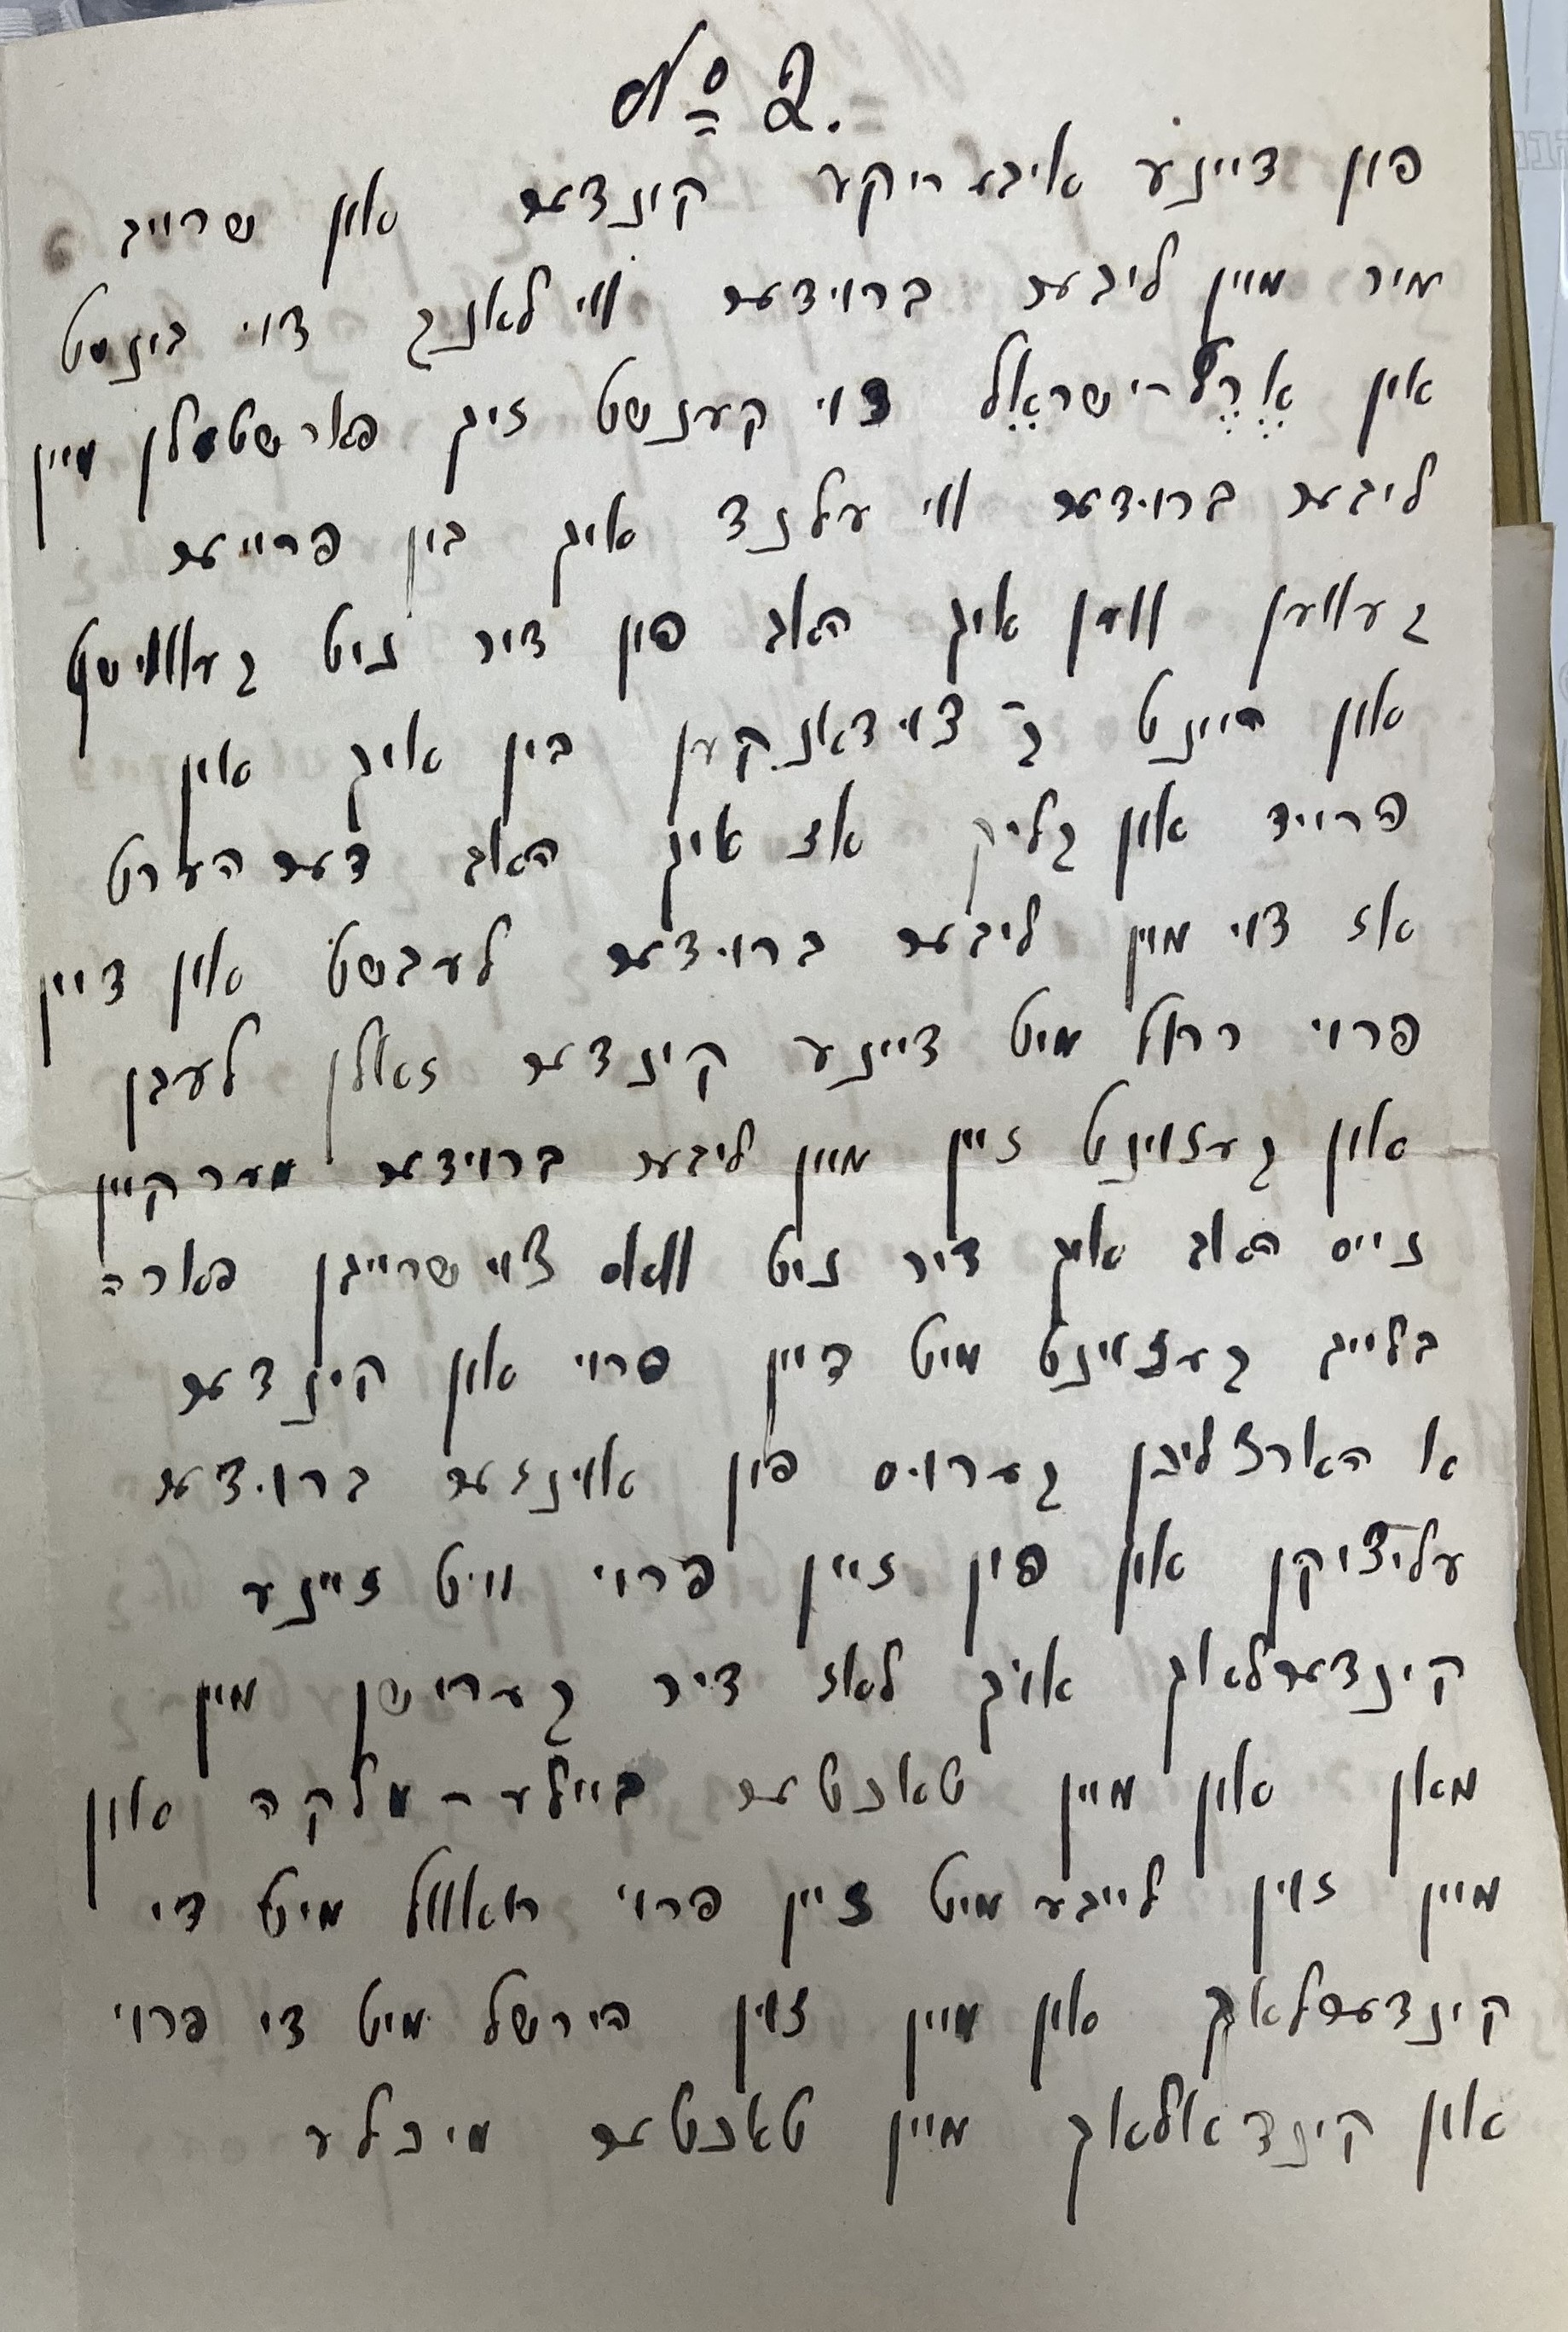 № 2.
פון דיינע איבעריקע קינדער און שרייב
מיר מיין ליבער ברודער ווי לאנג דוי בינסט
אין אֶרֶץ־ישראֶל דוי קענשט זיך פארשטעלן מיין
ליבער ברודער ווי עלנד איך בין פרייער
געווען ווען איך האב פון דיר ניט געוווישט
און היינט ג־צוידאנקען בין איך אין
פרייד און גליק אז איך האב דערהערט
אז דוי מיין ליבער ברודער לעבשט און דיין
פרוי רחל מיט דיינע קינדער זאלן לעבן
און געזוינט זיין מיין ליבער ברוידער מער קיין
נייס האב איך דיר ניט וואס צוי שרייבן פאר=
בלייב געזוינט מיט דיין פרוי און קינדער
א הארצליכן גערוס פון אוינזער ברודער
עליציקן און פון זיין פרוי מיט זיינע
קינדערלאך אויך לאז דיר גערישן מיין
מאן און מיין טאכטער ביילע־מלקה און
מיין זוין לייבע מיט זיין פרוי מיט די
קינדערלאך און מיין זוין הירשל מיט די פרוי
און קינדאלאך מיין טאכטער מיכלע